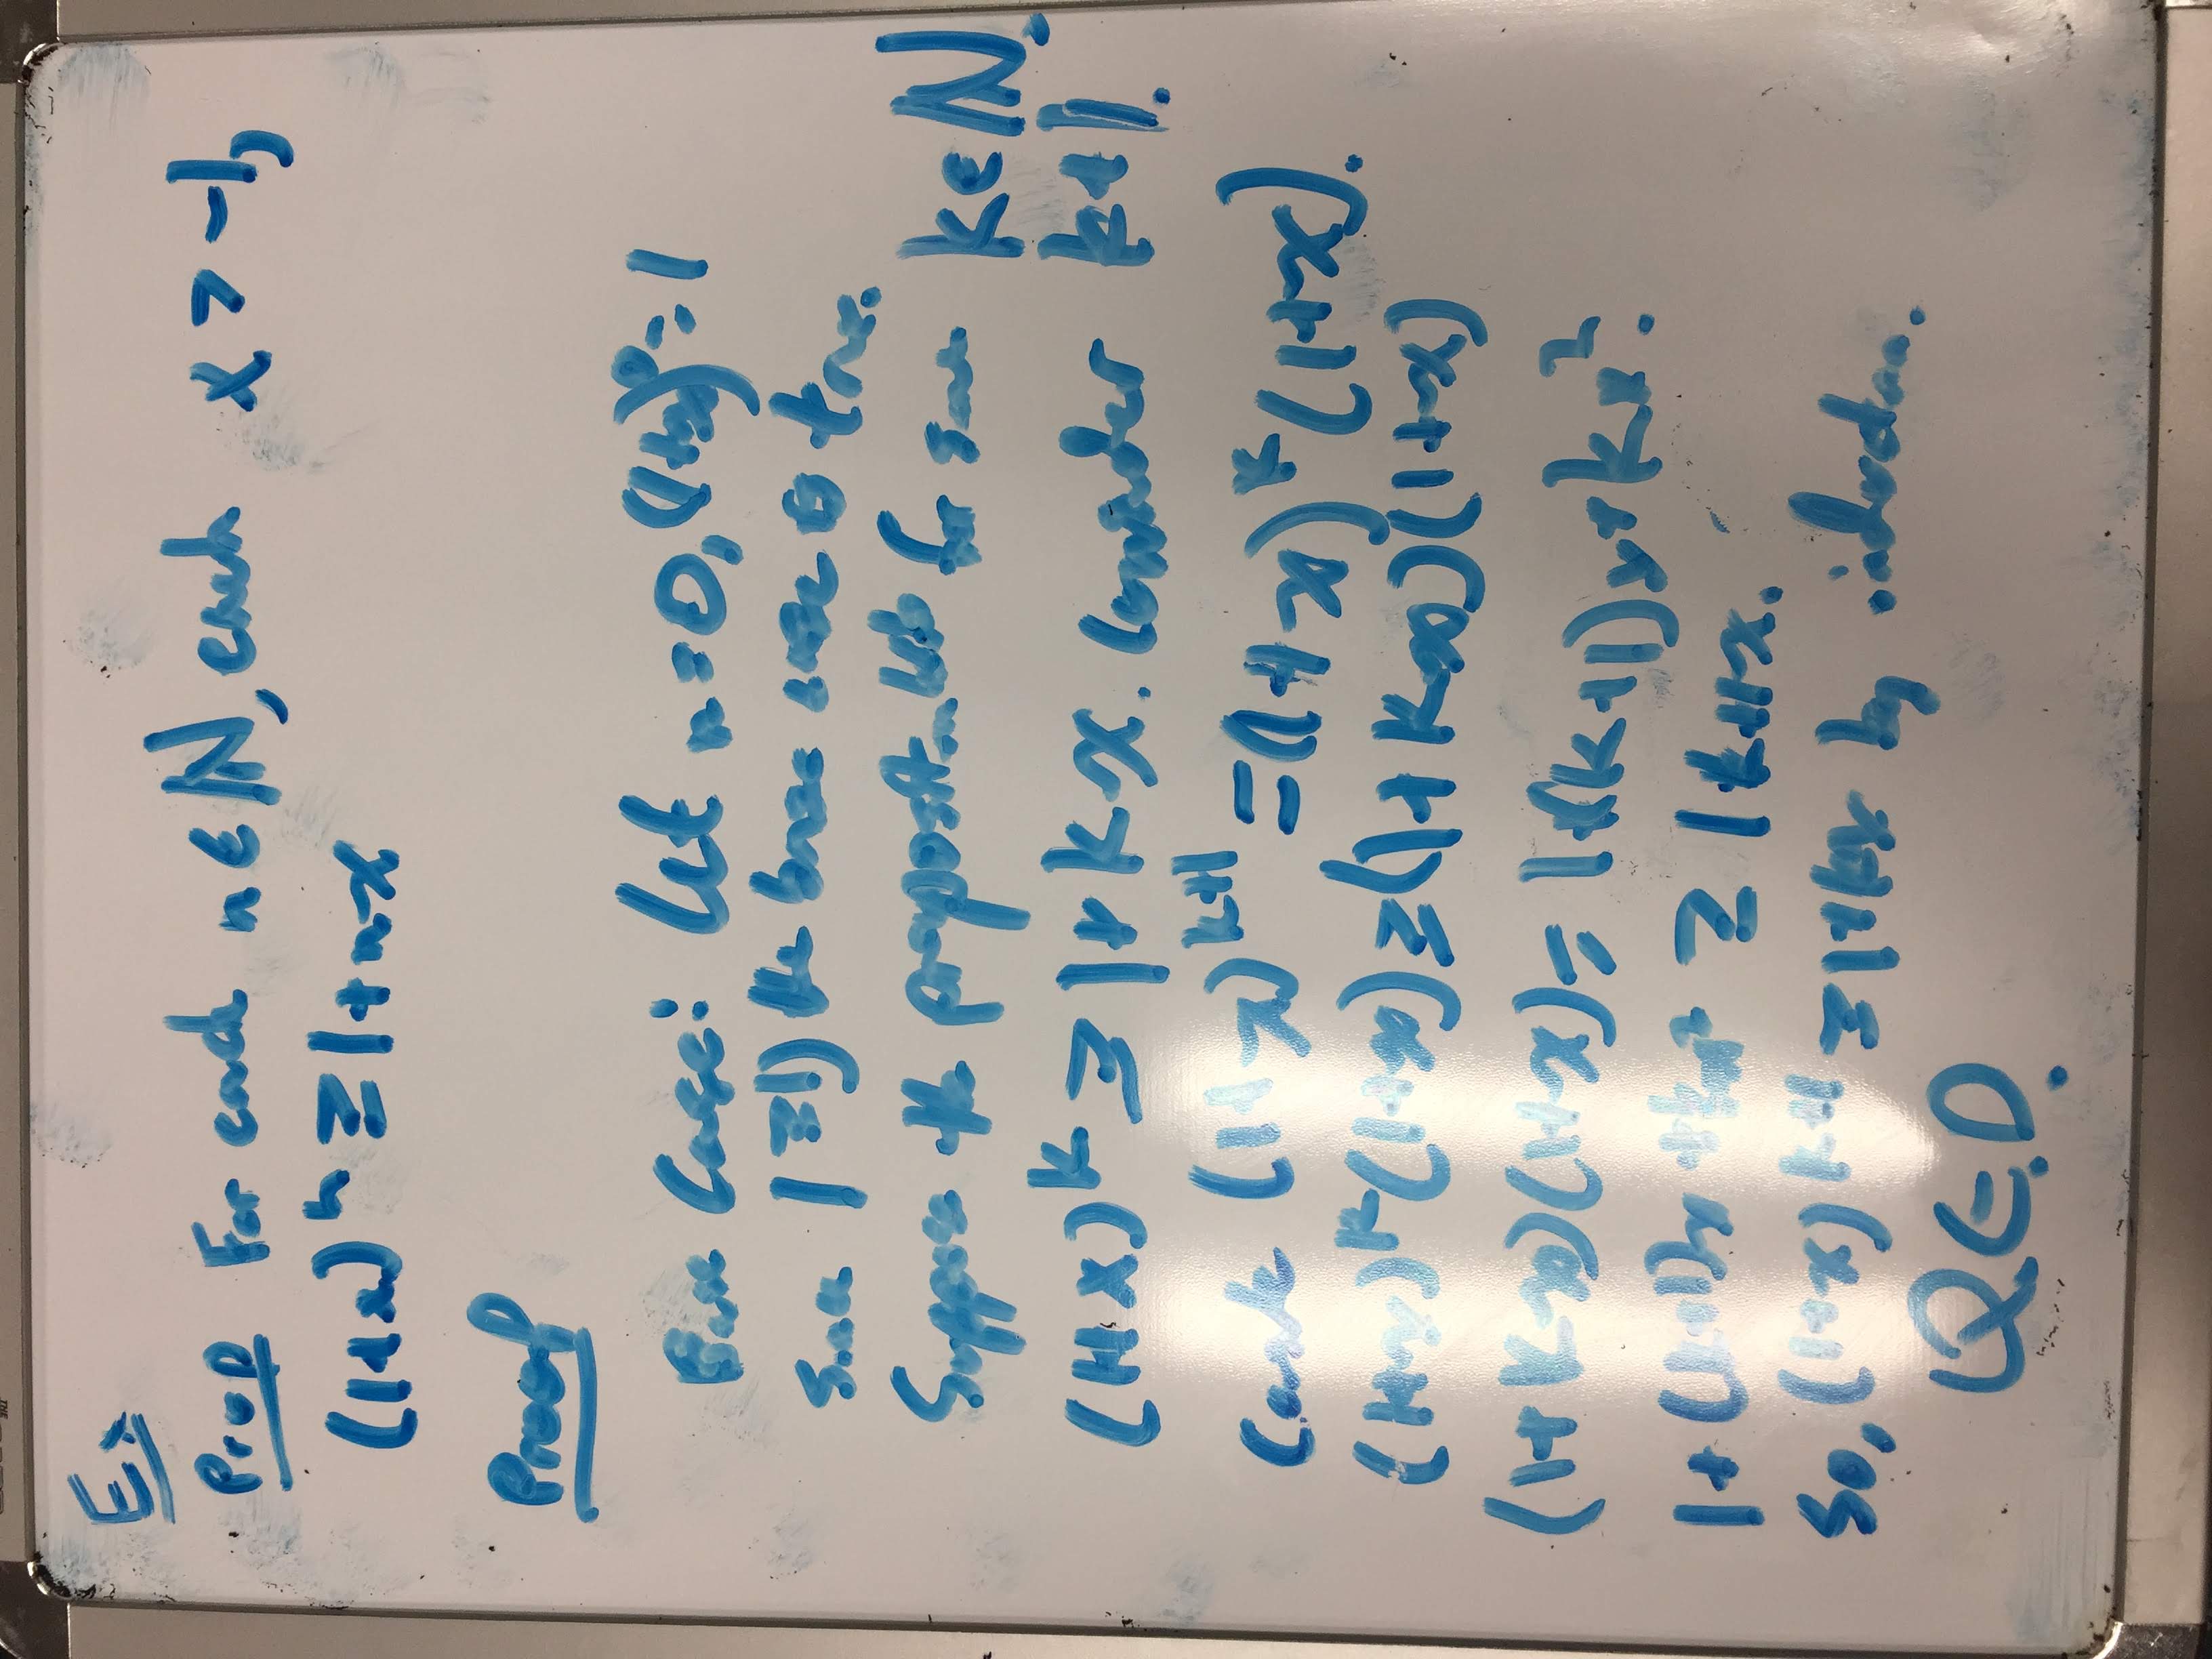 Ex
Prop For each n ∈ ℕ, each x > -1,
(1+x)^n ≥ 1+nx
Proof
Base Case: Let n=0, (1+x)^0 = 1
Since 1 ≥ 1, the base case is true.
Suppose the proposition holds for some k ∈ ℕ.
(1+x)^k ≥ 1+kx. Consider k+1.
(1+x)^{k+1} = (1+x)^k (1+x).
(1+x)^k (1+x) ≥ (1+kx)(1+x)
(1+kx)(1+x) = 1+(k+1)x+kx².
1+(k+1)x+kx² ≥ 1+k+1x.
So, (1+x)^{k+1} ≥ by induction.
Q.E.D.